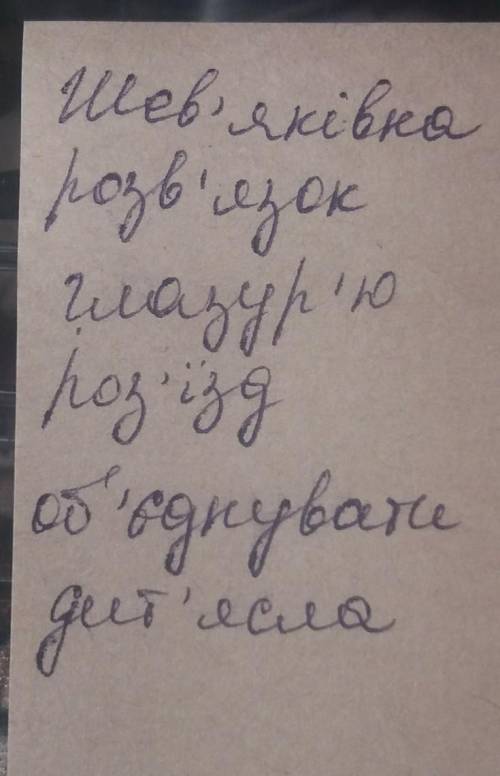 Шєв'яківна
розв'язок
глазур'ю
роз'їзд
об'єднувати
дит'ясла